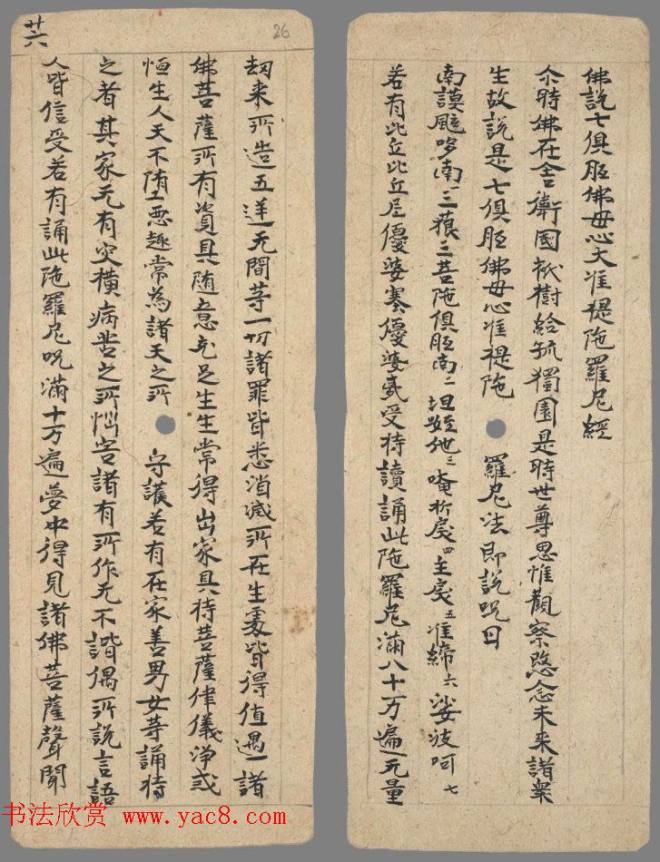 佛說七俱胝佛母心大准提陁羅尼經
尒時佛在舍衛國祇樹給孤獨園是時世尊思惟觀察愍念未来諸衆
生故說是七俱胝佛母心准提陁 羅尼法即說呪曰
南謨颯哆南一三藐三菩陁俱胝南二怛姪他三唵折戾四主戾五准締六娑婆呵七
若有比丘比丘尼優婆塞優婆夷受持讀誦此陁羅尼滿八十万遍无量
劫来所造五逆无間䓁一切諸罪皆悉消滅所在生處皆得值遇諸
佛菩薩所有資具随意充足生生常得出家具持菩薩律儀淨戒
恒生人天不堕惡趣常為諸天之所 守護若有在家善男女䓁誦持
之者其家无有灾橫病苦之所惱害諸有所作无不諧偶所說言語
人皆信受若有誦此陁羅尼呪滿十万遍夢中得見諸佛菩薩聲聞
廿六
26
书法欣赏 www.yac8.com